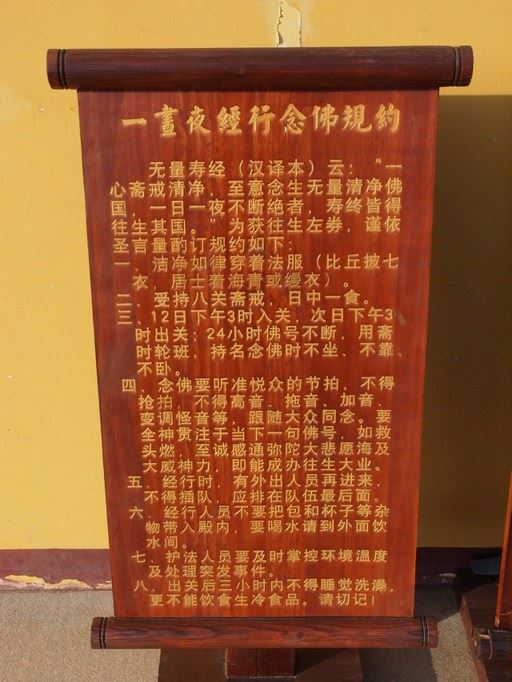 一晝夜經行念佛規約
无量寿经（汉译本）云："一
心斋戒清净，至意念生无量清净佛
国，一日一夜不断绝者，寿终皆得
往生其国。"为获往生左券，谨依
圣言量酌订规约如下：
一、洁净如律穿着法服（比丘披七
衣，居士着海青或缦衣）。
二、受持八关斋戒，日中一食。
三、12日下午3时入关，次日下午3
时出关；24小时佛号不断，用斋
时轮班，持名念佛时不坐、不靠、
不卧。
四、念佛要听准悦众的节拍，不得
抢拍，不得高音、拖音、加音、
变调怪音等，跟随大众同念。要
全神贯注于当下一句佛号，如救
头燃，至诚感通弥陀大悲愿海及
大威神力，即能成办往生大业。
五、经行时，有外出人员再进来，
不得插队，应排在队伍最后面。
六、经行人员不要把包和杯子等杂
物带入殿内，要喝水请到外面饮
水间。
七、护法人员要及时掌控环境温度
及处理突发事件。
八、出关后三小时内不得睡觉洗澡，
更不能饮食生冷食品。请切记！